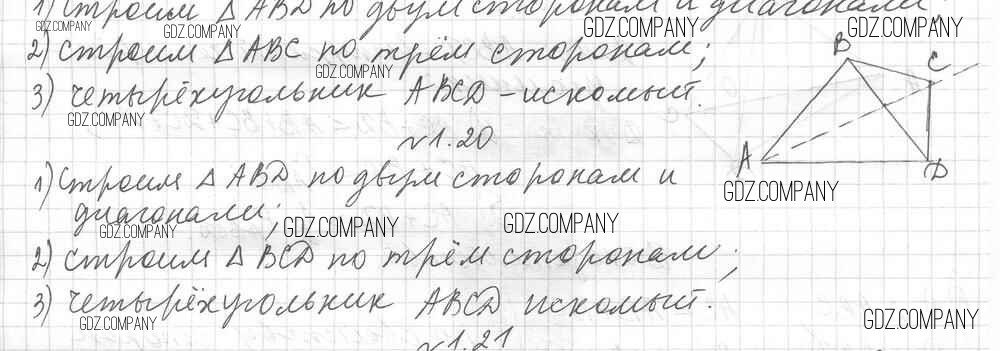 1) Строим △ ABD по двум сторонам и диагонали
GDZ.COMPANY GDZ.COMPANY GDZ.COMPANY GDZ.COMPANY
2) Строим △ ABC по трём сторонам;
GDZ.COMPANY
3) Четырёхугольник ABCD – искомый.
GDZ.COMPANY
B
C
A
D
GDZ.COMPANY
№1.20
1) Строим △ ABD по двум сторонам и
диагонали;
GDZ.COMPANY GDZ.COMPANY GDZ.COMPANY
2) Строим △ BCD по трём сторонам;
3) Четырёхугольник ABCD искомый.
GDZ.COMPANY GDZ.COMPANY
№1.21